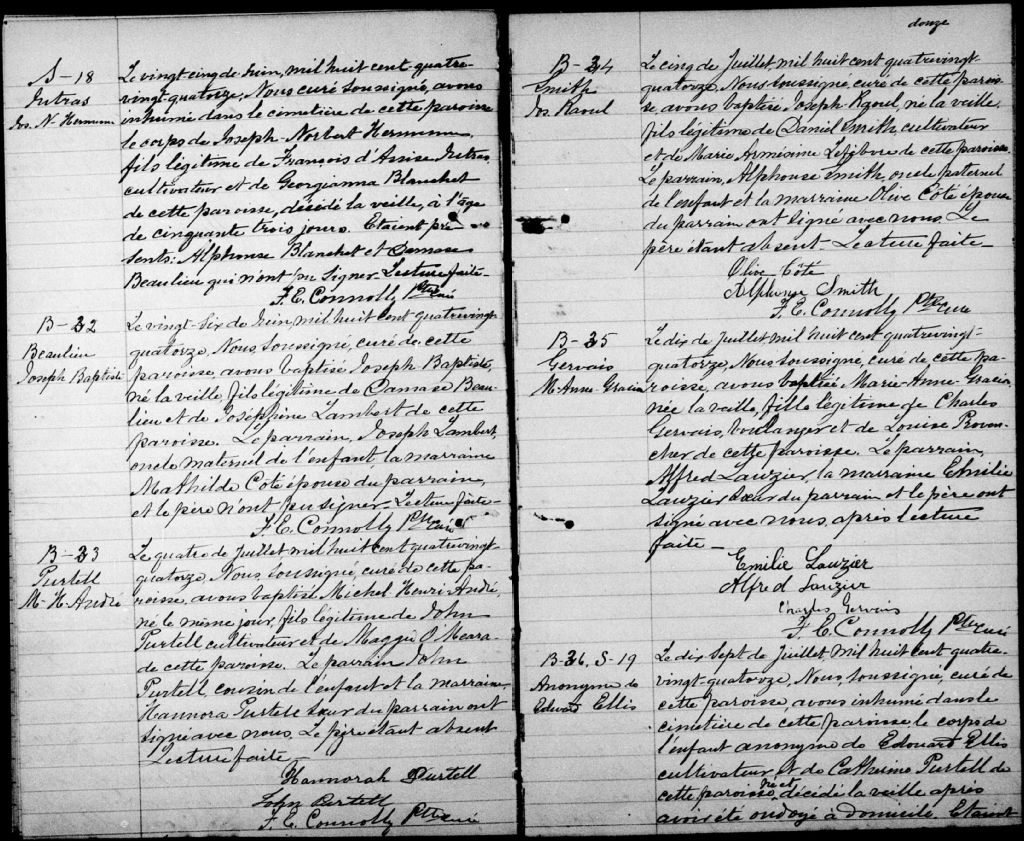 S-18
Jutras
Jos. N. Hermann
Le vingt-cinq de Juin, mil huit cent quatre-
vingt-quatorze, Nous curé soussigné, avons
inhumé dans le cimetière de cette paroisse
le corps de Joseph-Norbert Hermann
fils légitime de François d'Assise Jutras
cultivateur et de Georgianna Blanchet
de cette paroisse, décédé la veille, à l'âge
de cinquante trois jours. Etaient pré-
sents: Alphonse Blanchet et Damase
Beaulieu qui n'ont pu signer Lecture faite-
F. E. Connolly Ptre curé
B-22
Beaulieu
Joseph Baptiste
Le vingt-six de Juin, mil huit cent quatrevingt
quatorze, Nous, soussigné, curé de cette
paroisse, avons baptisé Joseph Baptiste,
né la veille, fils légitime de Damase Beau-
lieu et de Joséphine Lambert de cette
paroisse. Le parrain, Joseph Lambert,
oncle maternel de l'enfant, la marraine
Mathilde Coté épouse du parrain,
et le père n'ont pu signer-Lecture faite-
F. E. Connolly Ptre curé
B-23
Purtell
M-H. André
Le quatre de Juillet mil huit cent quatrevingt-
quatorze, Nous, soussigné, curé de cette pa-
roisse, avons baptisé Michel-Henri-André
né le même jour, fils légitime de John
Purtell cultivateur et de Maggie O'Meara
de cette paroisse. Le parrain John
Purtell, cousin de l'enfant et la marraine
Hannora Purtell sœur du parrain ont
signé avec nous. Le père étant absent
Lecture faite-
Hannorah Purtell
John Pertell
F. E. Connolly Ptre curé
douze
B-24
Smith
Jos Raoul
Le cinq de Juillet mil huit cent quatrevingt-
quatorze, Nous soussigné, curé de cette parois-
se, avons baptisé Joseph Raoul, né la veille,
fils légitime de Daniel Smith, cultivateur
et de Marie Armésime Lefebvre de cette paroisse.
Le parrain, Alphonse Smith, oncle paternel
de l'enfant et la marraine Olive Côté épouse
du parrain ont signé avec nous. Le
père étant absent Lecture faite-
Olive Côté
Alphonse Smith
F. E. Connolly Ptre curé
B-25
Gervais
M-Anne-Gracia
Le dix de Juillet mil huit cent quatrevingt-
quatorze, Nous, soussigné, curé de cette pa-
roisse, avons baptisé, Marie-Anne-Gracia,
née la veille, fille légitime de Charles
Gervais, boulanger et de Louise Proven-
cher de cette paroisse. Le parrain,
Alfred Lauzier, la marraine Emilie
Lauzier sœur du parrain et le père ont
signé avec nous, après lecture
faite-
Emilie Lauzier
Alfred Lauzier
Charles Gervais
F. E. Connolly Ptre curé
B-26, S-19
Anonyme de
Edward Ellis
Le dix sept de Juillet, mil huit cent quatre-
vingt-quatorze, Nous, soussigné, curé de
cette paroisse, avons inhumé dans le
cimetière de cette paroisse le corps de
l'enfant anonyme de Edouard Ellis
cultivateur et de Catherine Purtell de
cette paroisse né et décédé la veille après
avoir été ondoyé à domicile. Etaient